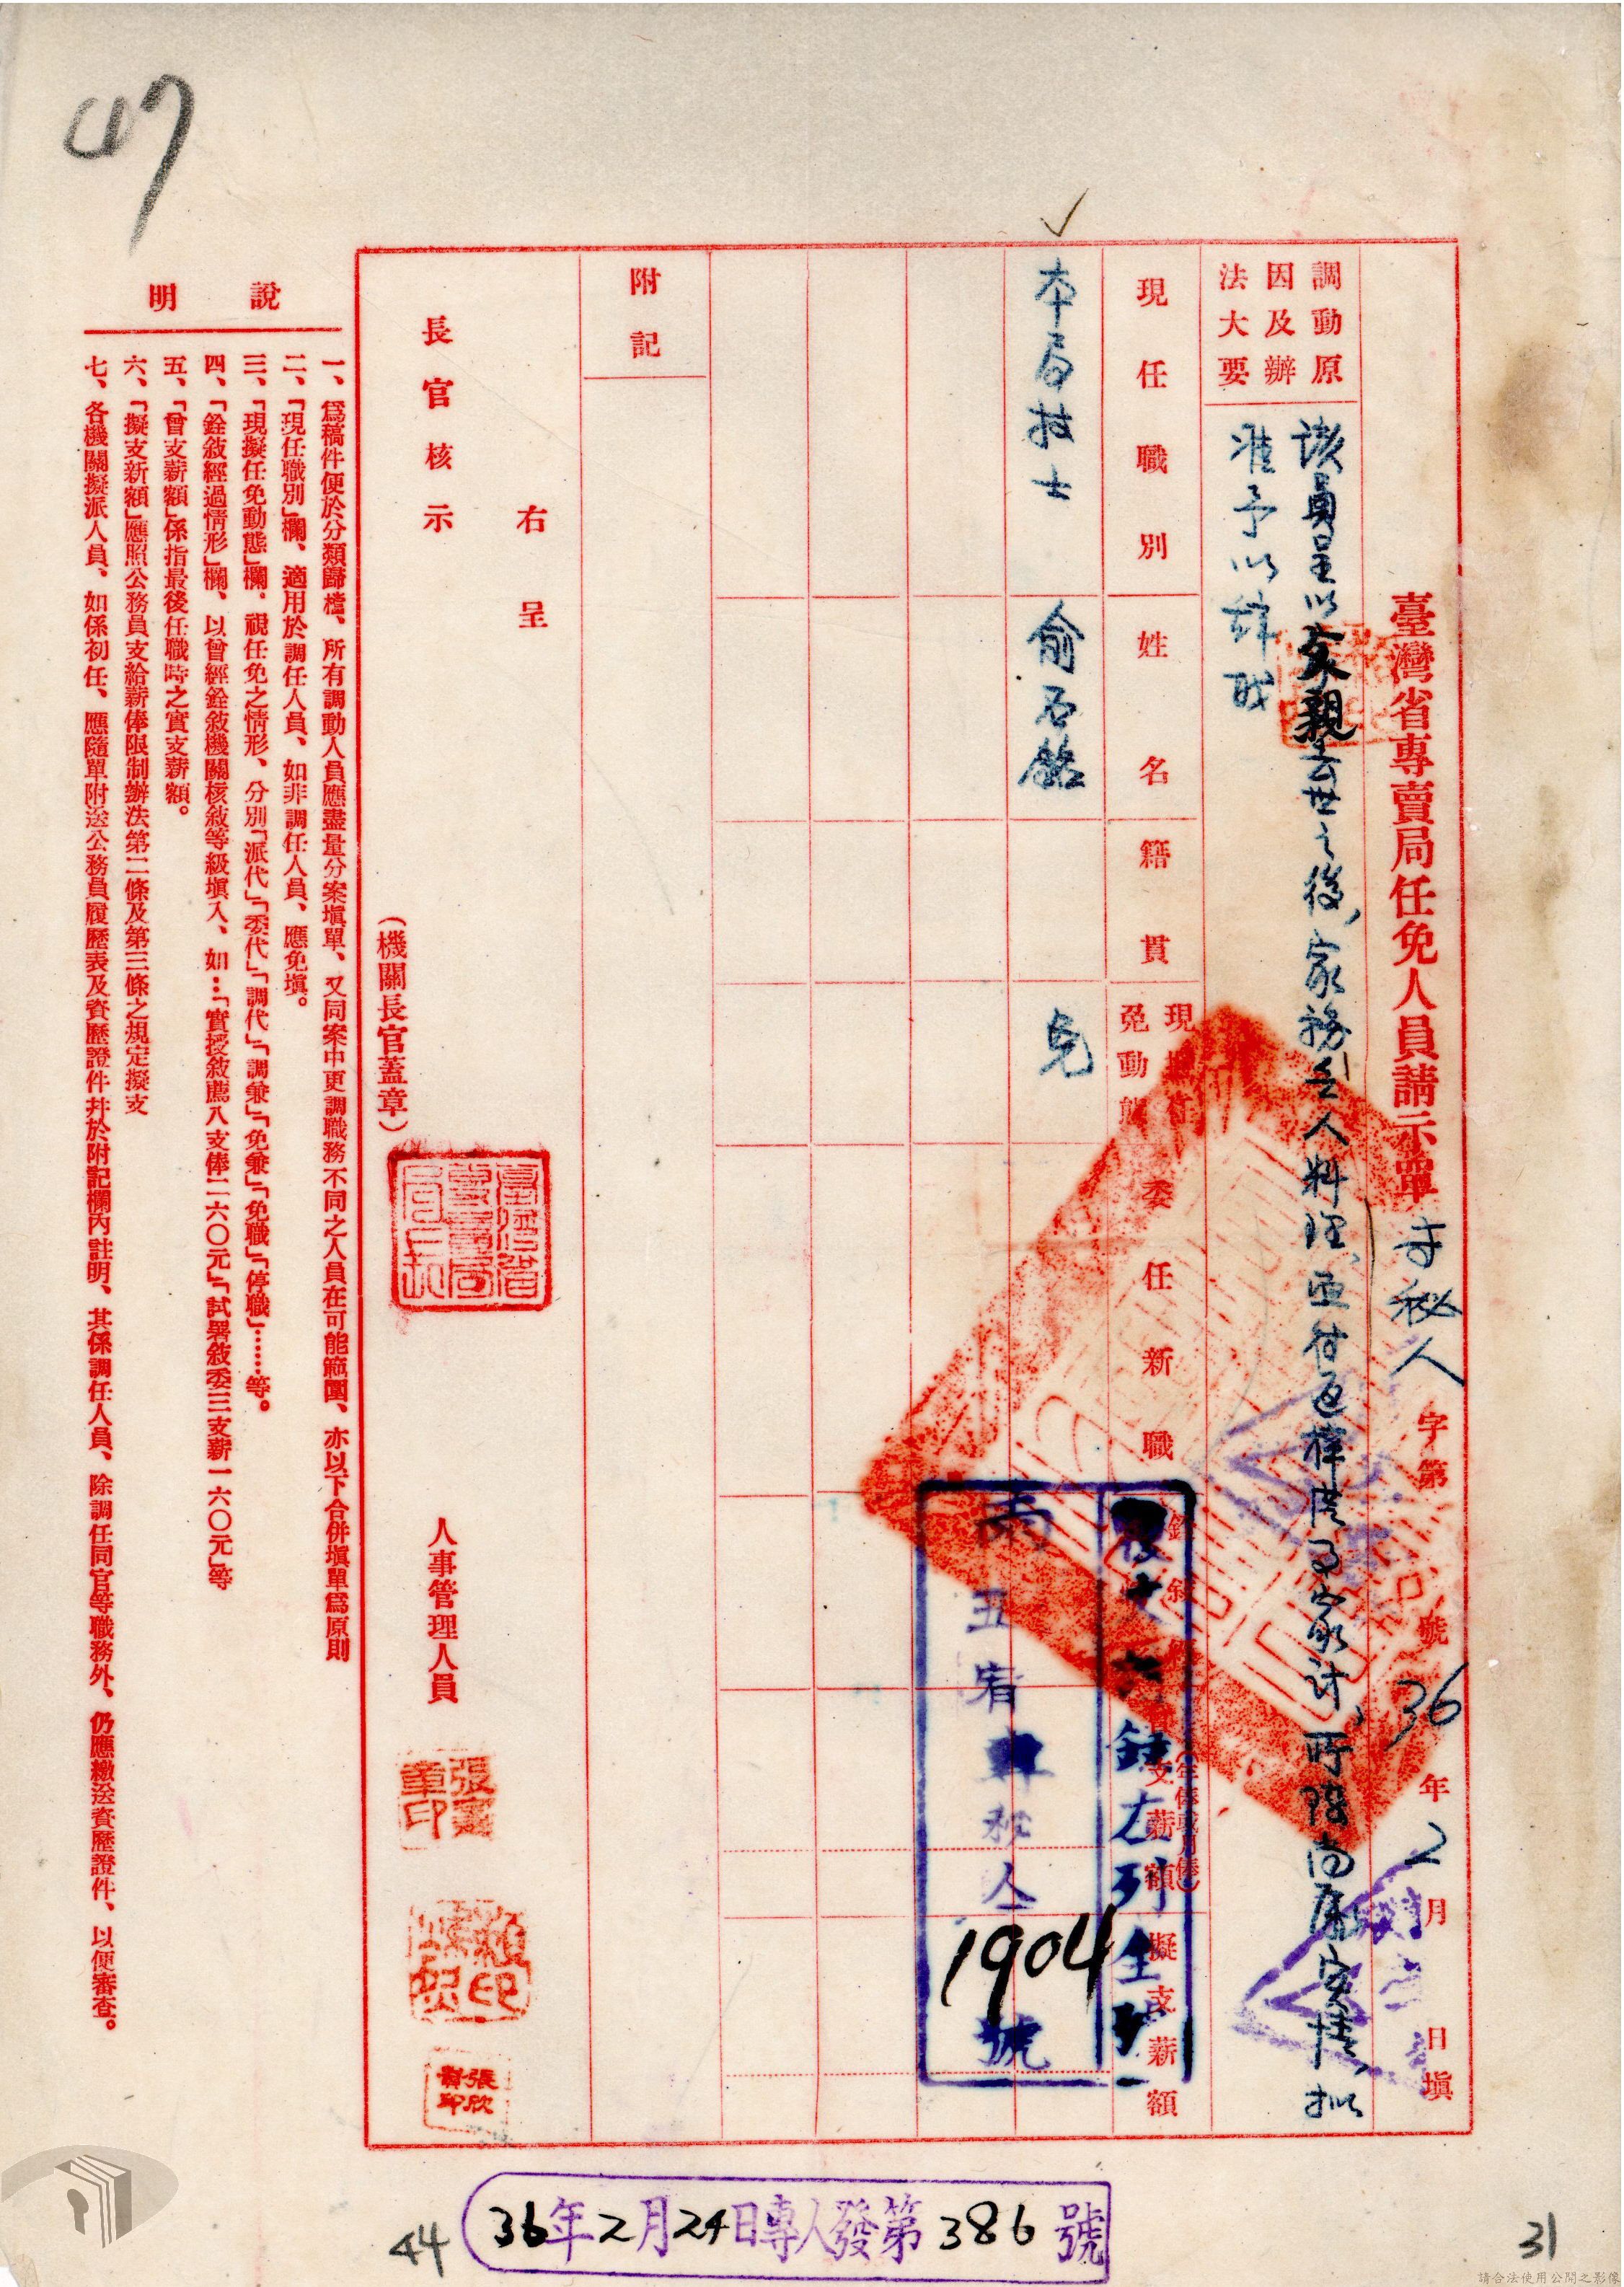 47
臺灣省專賣局任免人員請示單
寺秘人字第 號 36年2月 日填
調動原因及辦法大要
該員呈以父親去世之後,家務無人料理,亟待返梓供理家計,所請尚屬實情,擬
准予以辭職
現任職別
姓名
籍貫
現擬任免動態
擬委任新職
銓敘
支薪額
(年俸或月俸)
擬支薪額
本局技士
俞石銘
免
右列全
人
1904
號
附記
右呈
長官核示
(機關長官蓋章)
臺灣省專賣局
人事管理人員
說明
一、為稿件便於分類歸檔、所有調動人員應盡量分案填單、又同案中更調職務不同之人員在可能範圍、亦以下合併填單為原則
二、「現任職別」欄、適用於調任人員、如非調任人員、應免填。
三、「現擬任免動態」欄、視任免之情形、分別「派代」「委代」「調代」「調兼」「免兼」「免職」「停職」……等。
四、「銓敘經過情形」欄、以曾經銓敘機關核敘等級填入、如:「實授敘薦八支俸二六〇元」「試署敘委三支薪一六〇元」等
五、「曾支薪額」係指最後任職時之實支薪額。
六、「擬支新額」應照公務員支給薪俸限制辦法第二條及第三條之規定擬支
七、各機關擬派人員、如係初任、應隨單附送公務員履歷表及資歷證件幷於附記欄內註明、其係調任人員、除調任同官等職務外、仍應繳送資歷證件、以便審查。
36年2月24日專人發第386號
44
31
請合法使用公開之影像